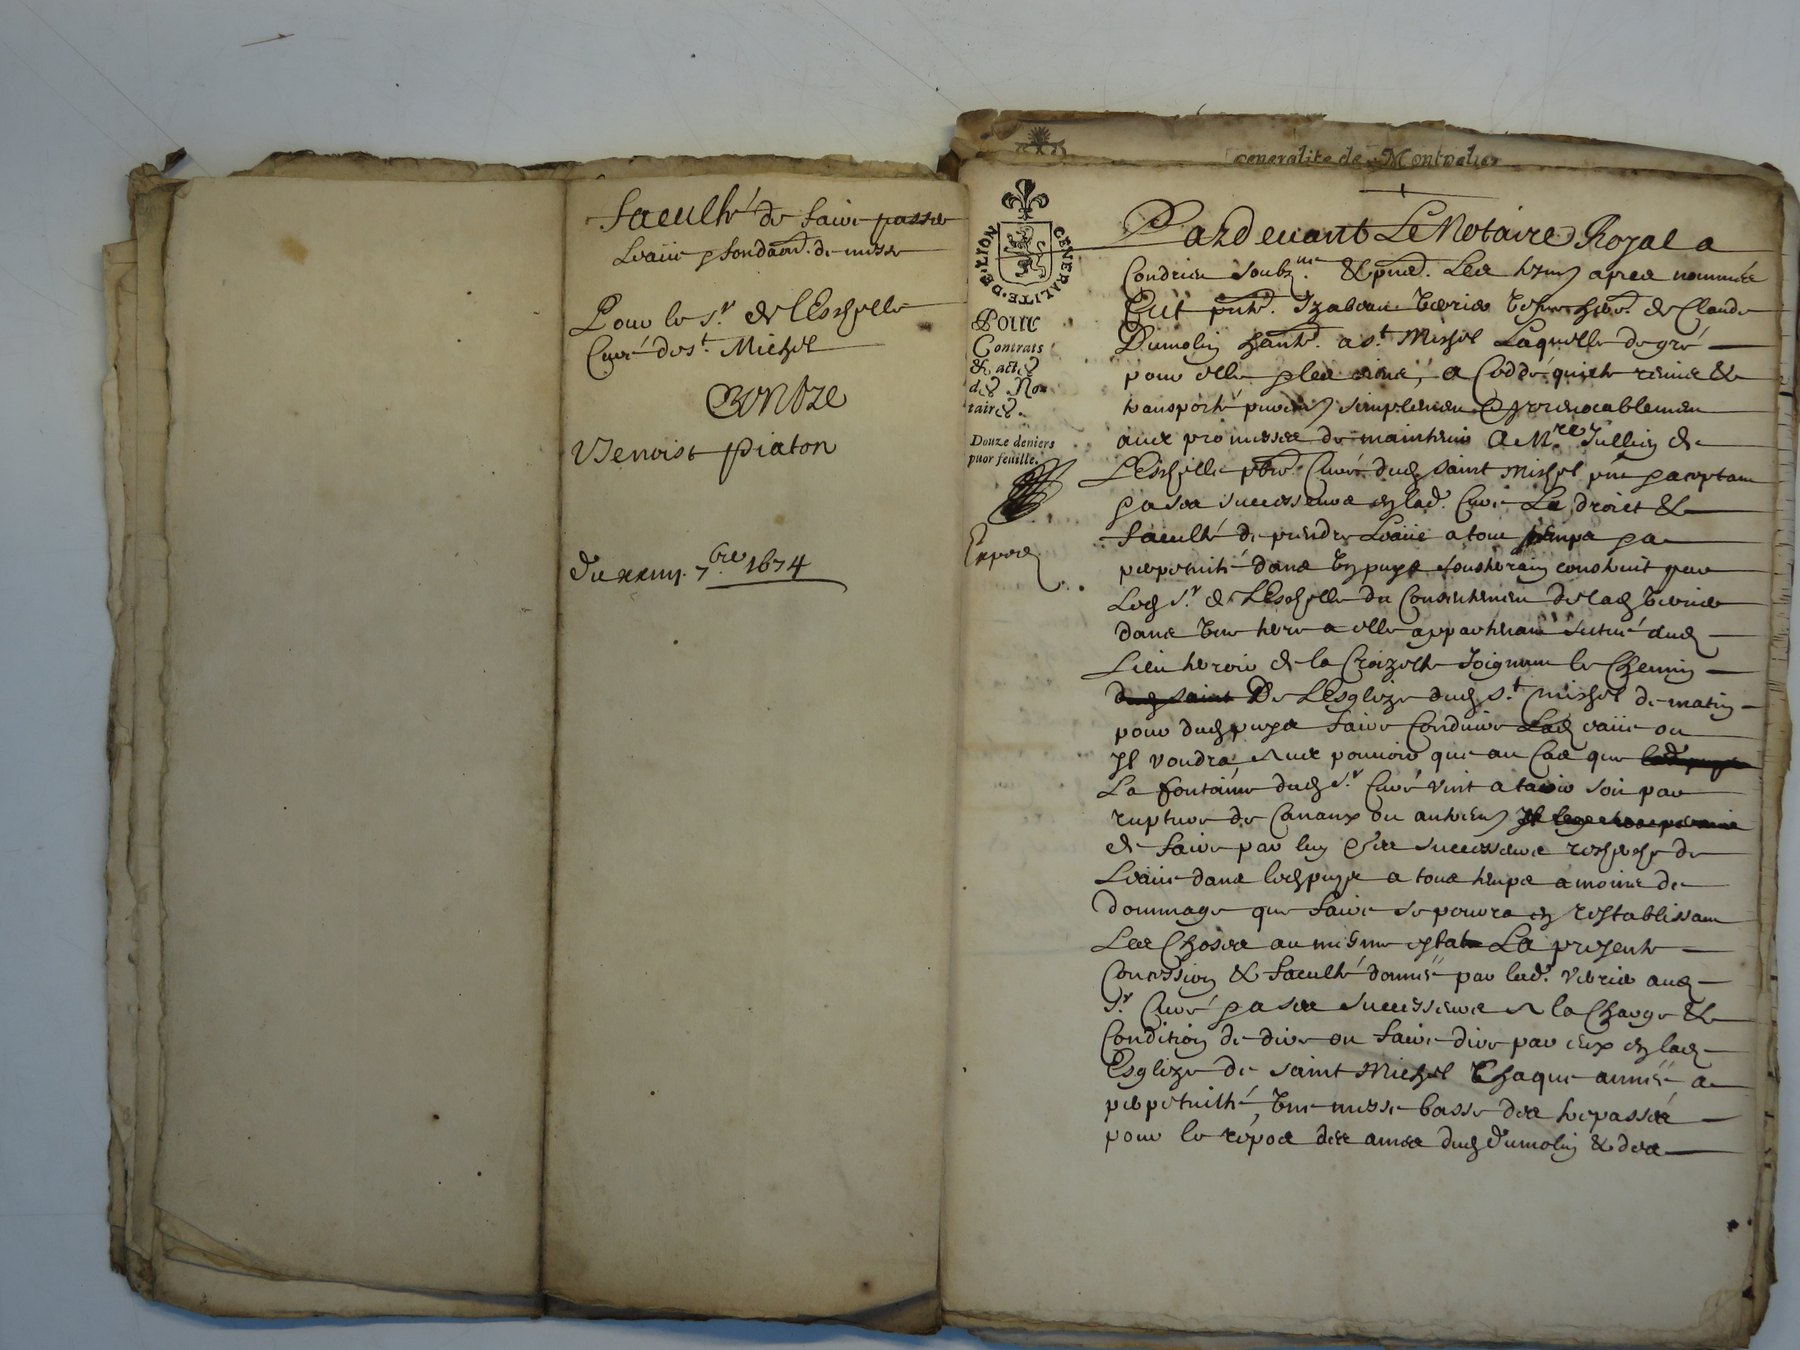 faculté de faire passer
leaue & fondaõn. de messe
Pour le Sr. de lEschelle
Curé de St. Michel
Contre
Benoist piaton
du xxiiij. 7bre 1674
Generalite de Montpelier
GENERALITE·DE·LION
Pour
Contrats
& actes
des No-
taires.
Douze deniers
puor feuille.
Expedié
Pardevant Le Notaire Royal a
Condrieu soubzne. & pnt. Les tesm apres nommés
fut pnte. Izabeau Verier vefve de Claude
Dumolin hante. a St. Michel Laquelle de gré
pour elle & les siens, a Ceddé quitte remis &
transporté purem simplemen & Irrevocablemen
avec promesses de maintenir A Mre Jullien de
LEschelle pbre Curé dud saint Michel pnt & aceptam
& a ses successeurs en lad. Cure Le droict &
faculté de prendre Leaue a tous temps & a
perpetuité dans un puys sousterain construit par
Led Sr. de LEschelle du Consentemen de lad Verier
dans une terre a elle appartenant situé aud
Lieu terroir de la Croizette Joignant le Chemin
dud saint De LEsglize dud St. Michel de matin
pour dud puys faire Conduire Lad eaue ou
Il voudra avec pouvoir que au Cas que
La fontaine dud Sr. Curé vint a tarir soit par
rupture de Canaux ou autrem
de faire par luy & ses successeurs recherche de
Leaue dans led puys a tous temps a moins de
dommage que faire se pourra en restablissam
Les Choses au mesme estat La presente
Concession & faculté donnée par lad. Verier aud
Sr. Curé & a ses successeurs a la Charge &
Condition de dire ou faire dire par eux en lad
Esglize de saint Michel Chaque année a
perpetuité, une messe basse des trepassés
pour le repos des ames dud Dumolin & des